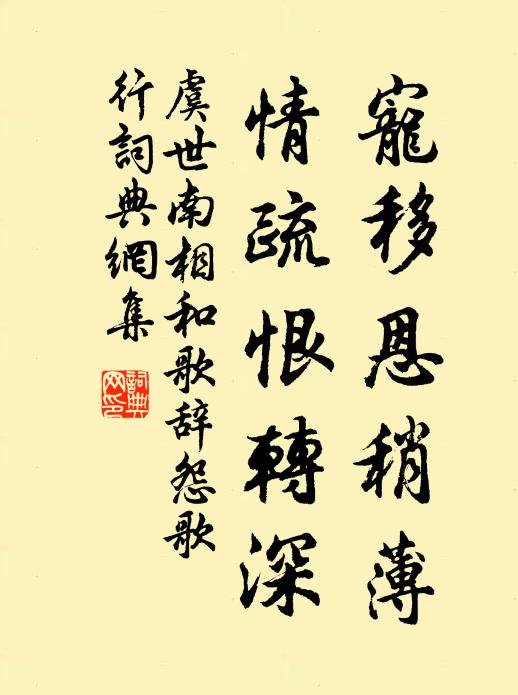 寵移恩稍薄
情疏恨轉深
虞世南相和歌辞怨歌
行詞典網集
詞典
网印